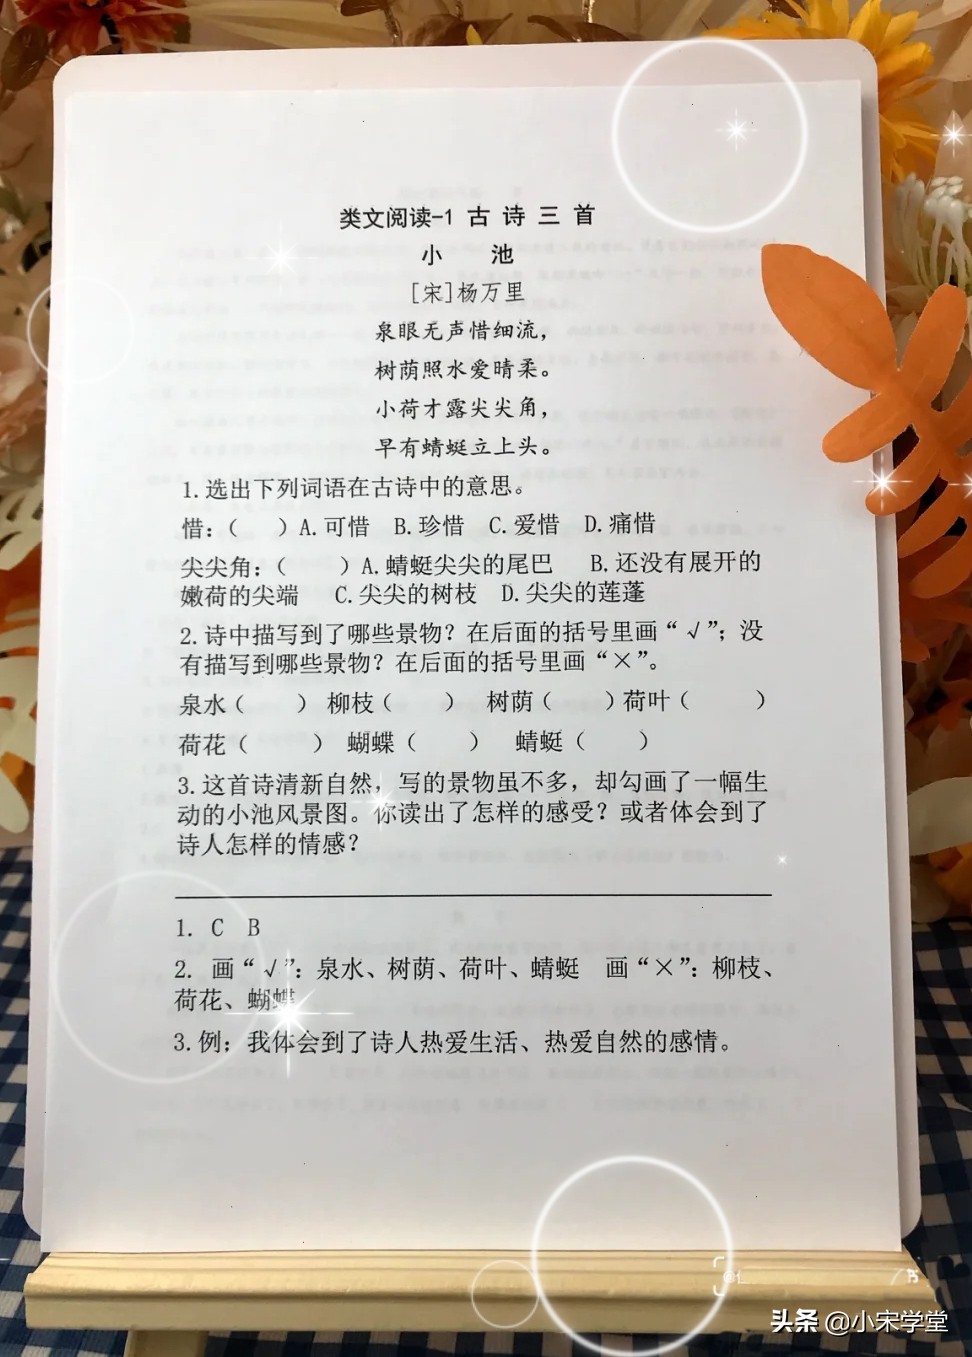 类文阅读-1 古 诗 三 首
小 池
[宋]杨万里
泉眼无声惜细流,
树荫照水爱晴柔。
小荷才露尖尖角,
早有蜻蜓立上头。
1.选出下列词语在古诗中的意思。
惜:( )A.可惜 B.珍惜 C.爱惜 D.痛惜
尖尖角:( )A.蜻蜓尖尖的尾巴 B.还没有展开的
嫩荷的尖端 C.尖尖的树枝 D.尖尖的莲蓬
2.诗中描写到了哪些景物?在后面的括号里画“√”;没
有描写到哪些景物?在后面的括号里画“×”。
泉水( ) 柳枝( ) 树荫( )荷叶( )
荷花( ) 蝴蝶( ) 蜻蜓( )
3.这首诗清新自然,写的景物虽不多,却勾画了一幅生
动的小池风景图。你读出了怎样的感受?或者体会到了
诗人怎样的情感?
1. C B
2. 画“√”:泉水、树荫、荷叶、蜻蜓 画“×”:柳枝、
荷花、蝴蝶
3.例:我体会到了诗人热爱生活、热爱自然的感情。
头条 @小宋学堂